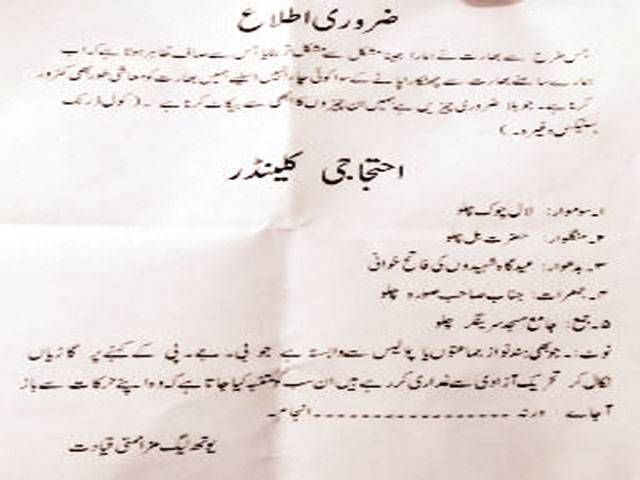 ضروری اطلاع
جس طرح سے بھارت نے ہمارا جینا مشکل سے مشکل تر بنایا جس سے صاف ظاہر ہوتا ہے کہ اب
ہمارے سامنے بھارت سے چھٹکارا پانے کے سوا کوئی چارا نہیں اسلئے ہمیں بھارت کو معاشی طور بھی کمزور
کرنا ہے۔ جو بلا ضروری چیزیں ہے ہمیں ان چیزوں کا ابھی سے بیکاٹ کرنا ہے ۔ (کول ڈرنک
، سنیکس وغیرہ۔)
احتجاجی کلینڈر
۱۔ سوموار: لال چوک چلو
۲۔ منگلوار: حضرت بل چلو
۳۔ بدھوار: عیدگاہ شہیدوں کی فاتح خوانی
۴۔ جمعرات: جناب صاحب صورہ چلو
۵۔ جمع: جامع مسجد سرینگر چلو
نوٹ:۔ جو بھی ہند نواز جماعتوں یا پولیس سے وابستہ ہے جو بی۔ جے۔ پی کے کہنے پر گاڑیاں
نکال کر تحریک آزادی سے غداری کر رہے ہیں ان سب کو متنبہ کیا جاتا ہے کہ وہ اپنے حرکات سے باز
آجاے ورنہ ۔۔۔۔۔۔۔۔۔۔۔۔۔۔۔۔۔۔ انجام۔
یوتھ لیگ مزاحمتی قیادت